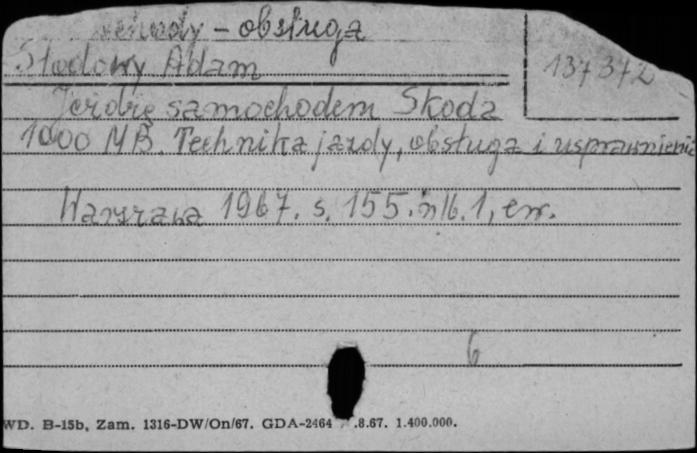 - obsługa
Słodowy Adam
137372
Jeżdżę samochodem Skoda
1000 MB. Technika jazdy, obsługa i usprawnienia
Warszawa 1967. s. 155. nlb. 1, err.
6
WD. B-15b, Zam. 1316-DW/On/67. GDA-2464 .8.67. 1.400.000.